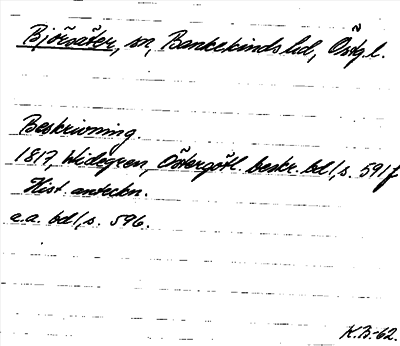 Björsäter, sn, Bankekinds hd, Östgl.
Beskrivning.
1817, Widegren, Östergötl. beskr. bd 1, s. 591 f
Hist. anteckn.
a.a. bd 1, s. 596.
K.B-62.